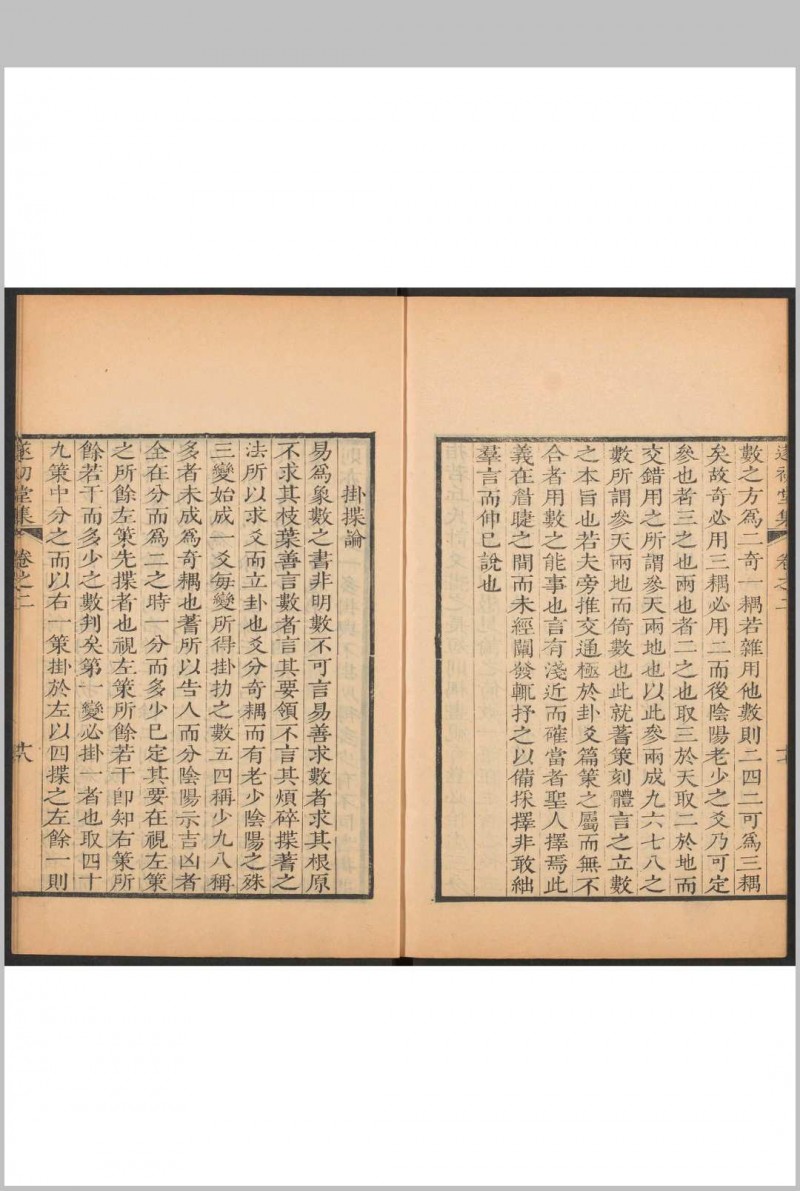 遂初堂集 卷之二
數之方爲二奇一耦若雜用他數則二四二可爲三耦
矣故奇必用三耦必用二而後陰陽老少之爻乃可定
參也者三之也兩也者二之也取三於天取二於地而
交錯用之所謂參天兩地也以此參兩成九六七八之
數所謂參天兩地而倚數也此就蓍策刻體言之立數
之本旨也若夫旁推交通極於卦爻篇策之屬而無不
合者用數之能事也言有淺近而確當者聖人擇焉此
義在眉睫之間而未經闡發輒抒之以備採擇非敢絀
羣言而伸巳說也
掛揲論
易爲象數之書非明數不可言易善求數者求其根原
不求其枝葉善言數者言其要領不言其煩碎揲蓍之
法所以求爻而立卦也爻分奇耦而有老少陰陽之殊
三變始成一爻每變所得掛扐之數五四稱少九八稱
多者未成爲奇耦也蓍所以告人而分陰陽示吉凶者
全在分而爲二之時一分而多少巳定其要在視左策
之所餘左策先揲者也視左策所餘若干卽知右策所
餘若干而多少之數判矣第一變必掛一者也取四十
九策中分之而以右一策掛於左以四揲之左餘一則
遂初堂集 卷之二 十八